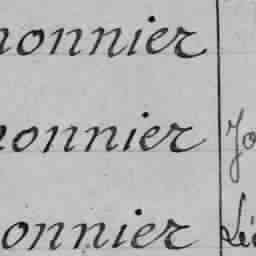 onnier
onnier Jo
onnier Lé